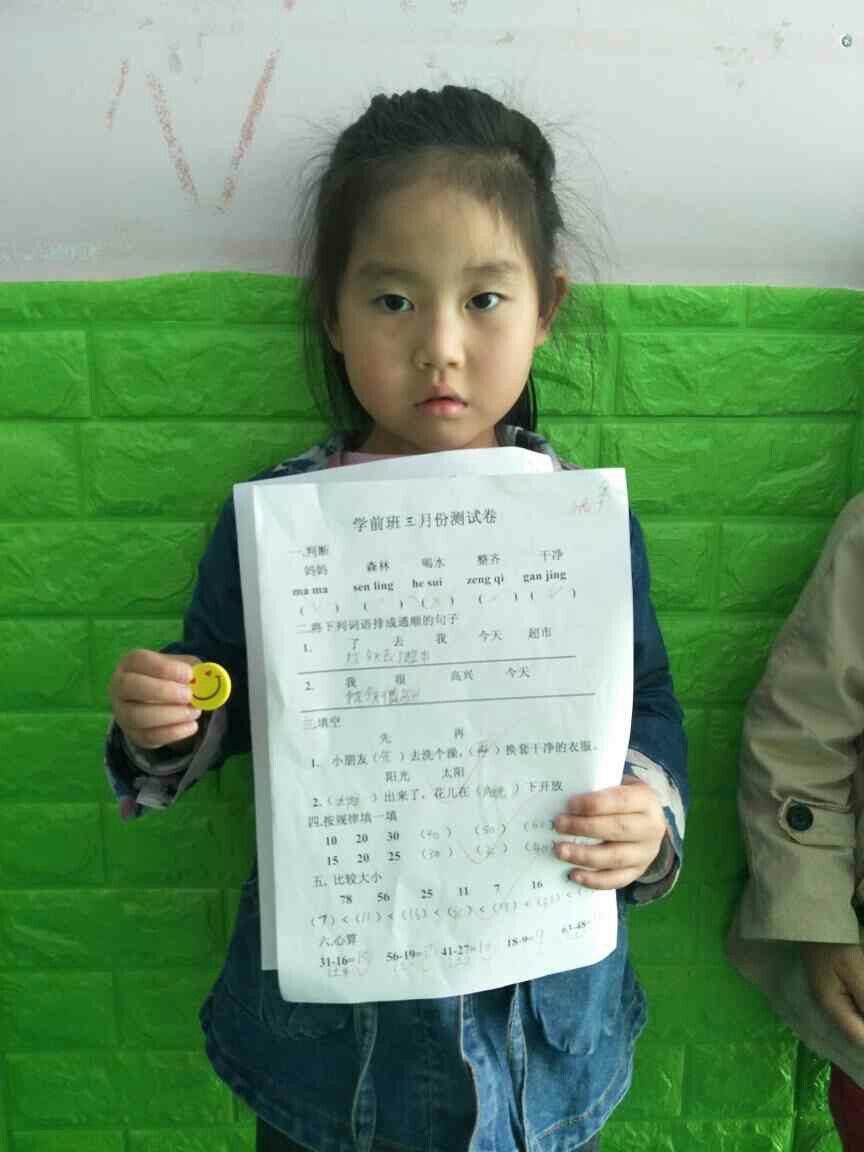 学前班三月份测试卷
一.判断
妈妈 森林 喝水 整齐 干净
ma ma sen ling he sui zeng qi gan jing
( ) ( ) ( ) ( ) ( )
二.将下列词语排成通顺的句子
1. 了 去 我 今天 超市
2. 我 很 高兴 今天
三.填空
先 再
1. 小朋友(先)去洗个澡,(再)换套干净的衣服。
阳光 太阳
2.(太阳)出来了,花儿在(阳光)下开放
四.按规律填一填
10 20 30 (40) (50) (60)
15 20 25 (30) (35) (40)
五.比较大小
78 56 25 11 7 16
(7)<(11)<(16)<
六.心算
31-16=15 56-19= 41-27= 18-9=9 63-48=